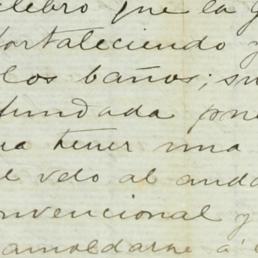 elebro que la g
fortaleciendo y
los baños; su
fundada pone
na tener una
el vedo al anda
nvencional y
amoldarme á e